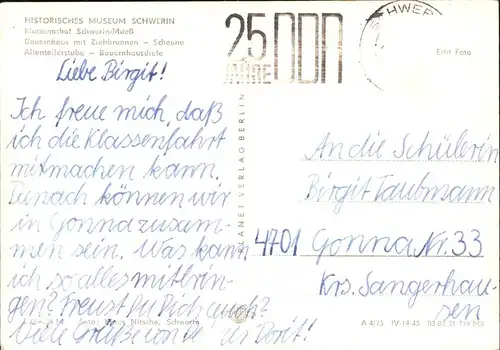 HISTORISCHES MUSEUM SCHWERIN
Museumshof Schwerin-Mueß
Bauernhaus mit Ziehbrunnen - Scheune
Altenteilerstube - Bauernhausdiele
25 JAHRE DDR
SCHWER
Echt Foto
Liebe Birgit!
Ich freue mich, daß
ich die Klassenfahrt
mitmachen kann.
Danach können wir
in Gonna zusam-
men sein. Was kann
ich so alles mitbrin-
gen? Freust Du Dich auch?
Viele Grüße von Dorit!
Foto: Nitsche, Schwerin
PLANET VERLAG BERLIN
An die Schülerin
Birgit Taubmann
4701 Gonna Nr. 33
Krs. Sangerhau-
sen
A 4/73 IV-14-45 03 02 31 119 MS